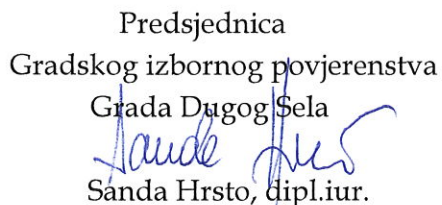 Predsjednica
Gradskog izbornog povjerenstva
Grada Dugog Sela
Sanda Hrsto, dipl.iur.